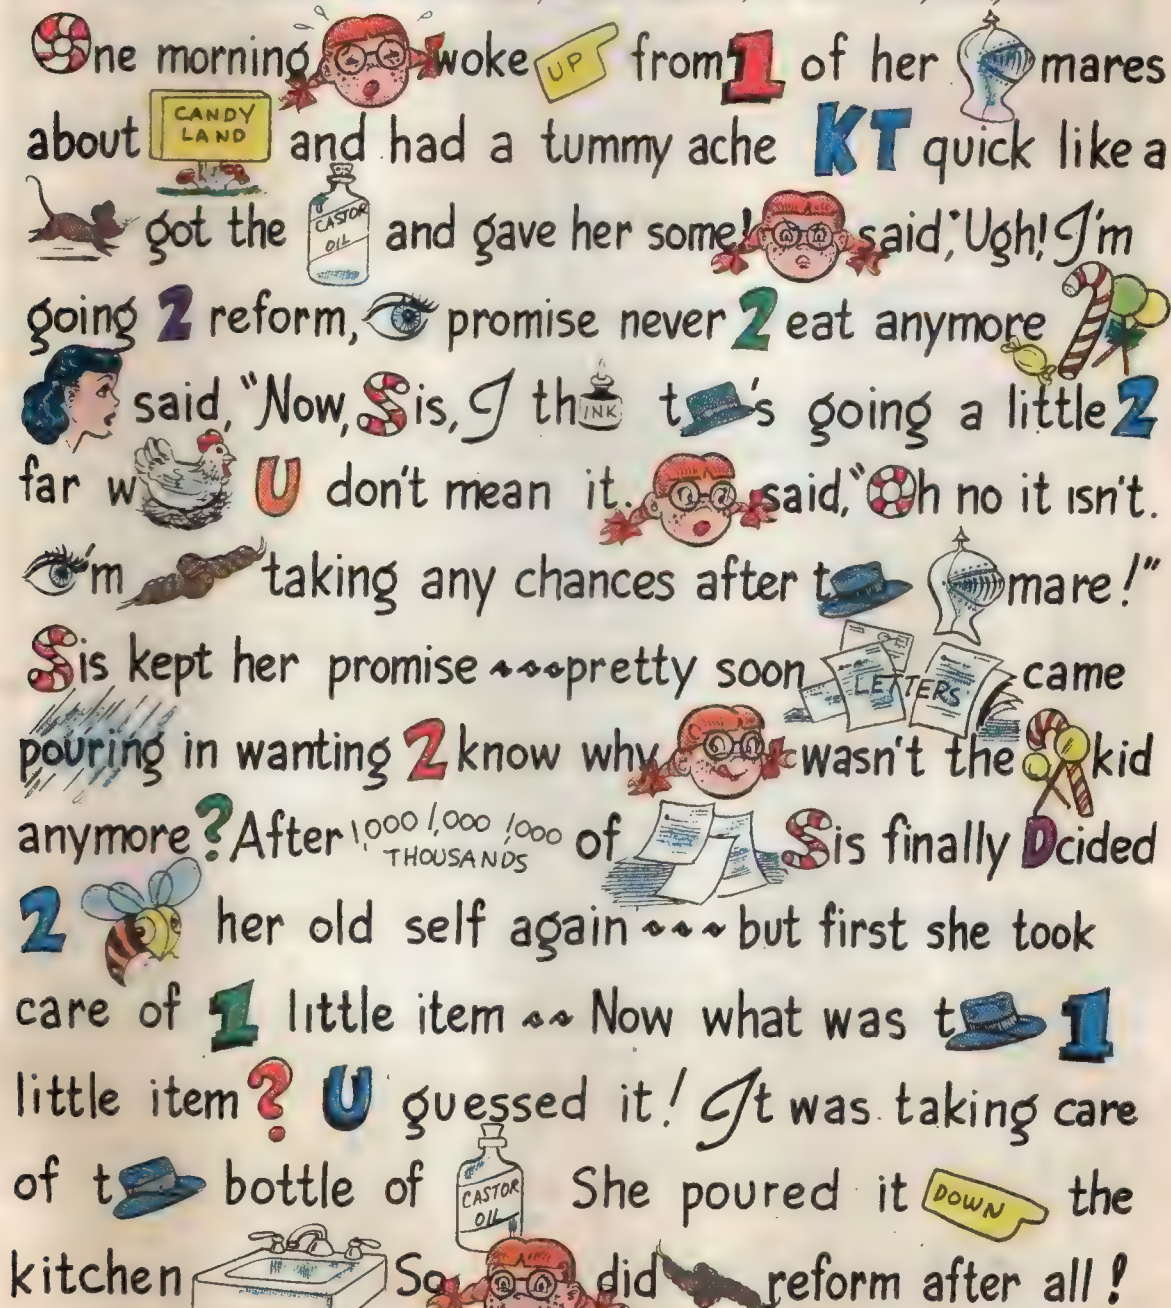 One morning woke UP from 1 of her mares
about CANDY LAND and had a tummy ache KT quick like a
got the CASTOR OIL and gave her some! said, "Ugh! I'm
going 2 reform, promise never 2 eat anymore
said, "Now, Sis, I th INK t 's going a little 2
far w U don't mean it. said, "Oh no it isn't.
'm taking any chances after t mare!"
Sis kept her promise pretty soon LETTERS came
pouring in wanting 2 know why wasn't the kid
anymore? After 1,000 1,000 1,000 THOUSANDS of Sis finally Dcided
2 her old self again but first she took
care of 1 little item Now what was t 1
little item? U guessed it! It was taking care
of t bottle of CASTOR OIL She poured it DOWN the
kitchen So did reform after all!